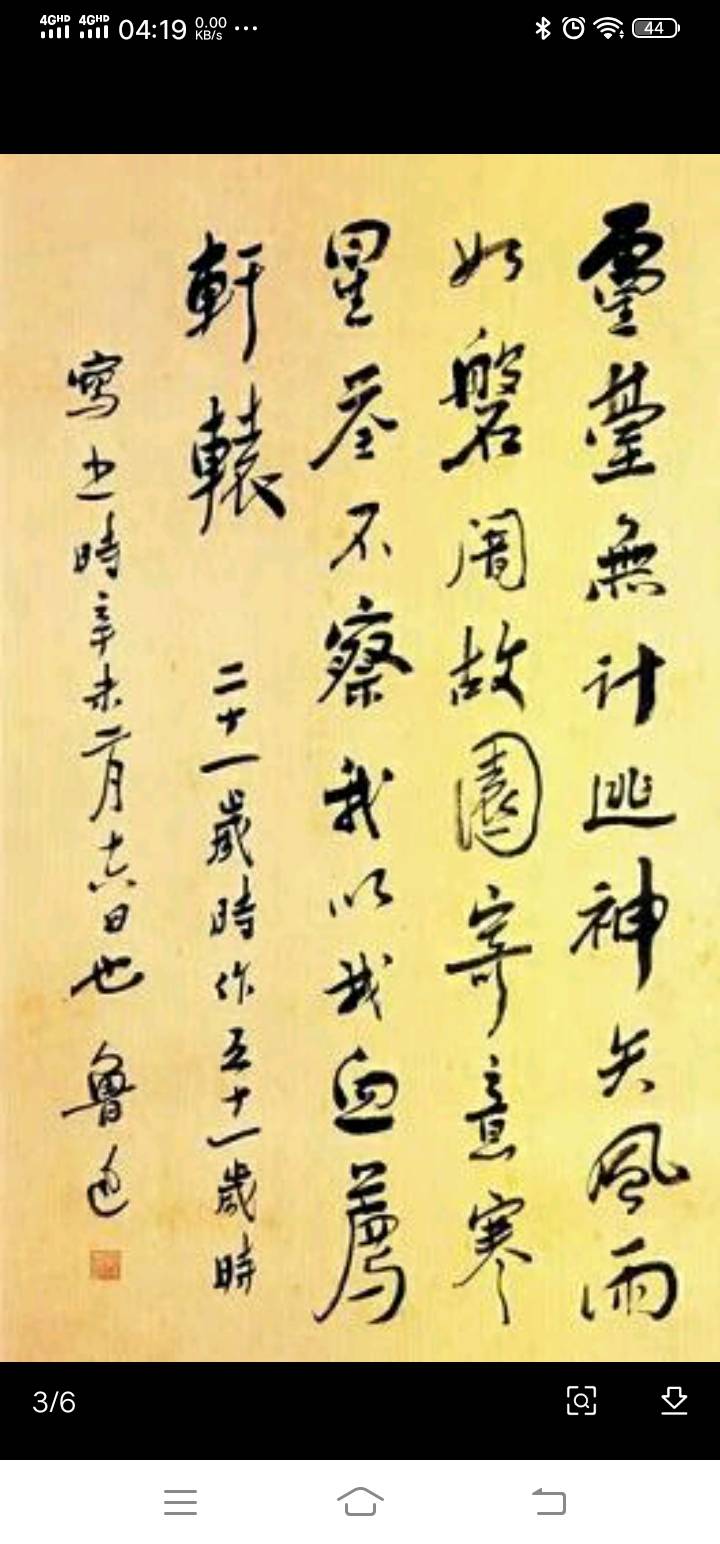 4GHD 4GHD 04:19 0.00 KB/s ... 44
靈臺無計逃神矢風雨
如磐闇故園寄意寒
星荃不察我以我血薦
軒轅 二十一歲時作五十一歲時
寫之時辛未二月十六日也 魯迅
3/6